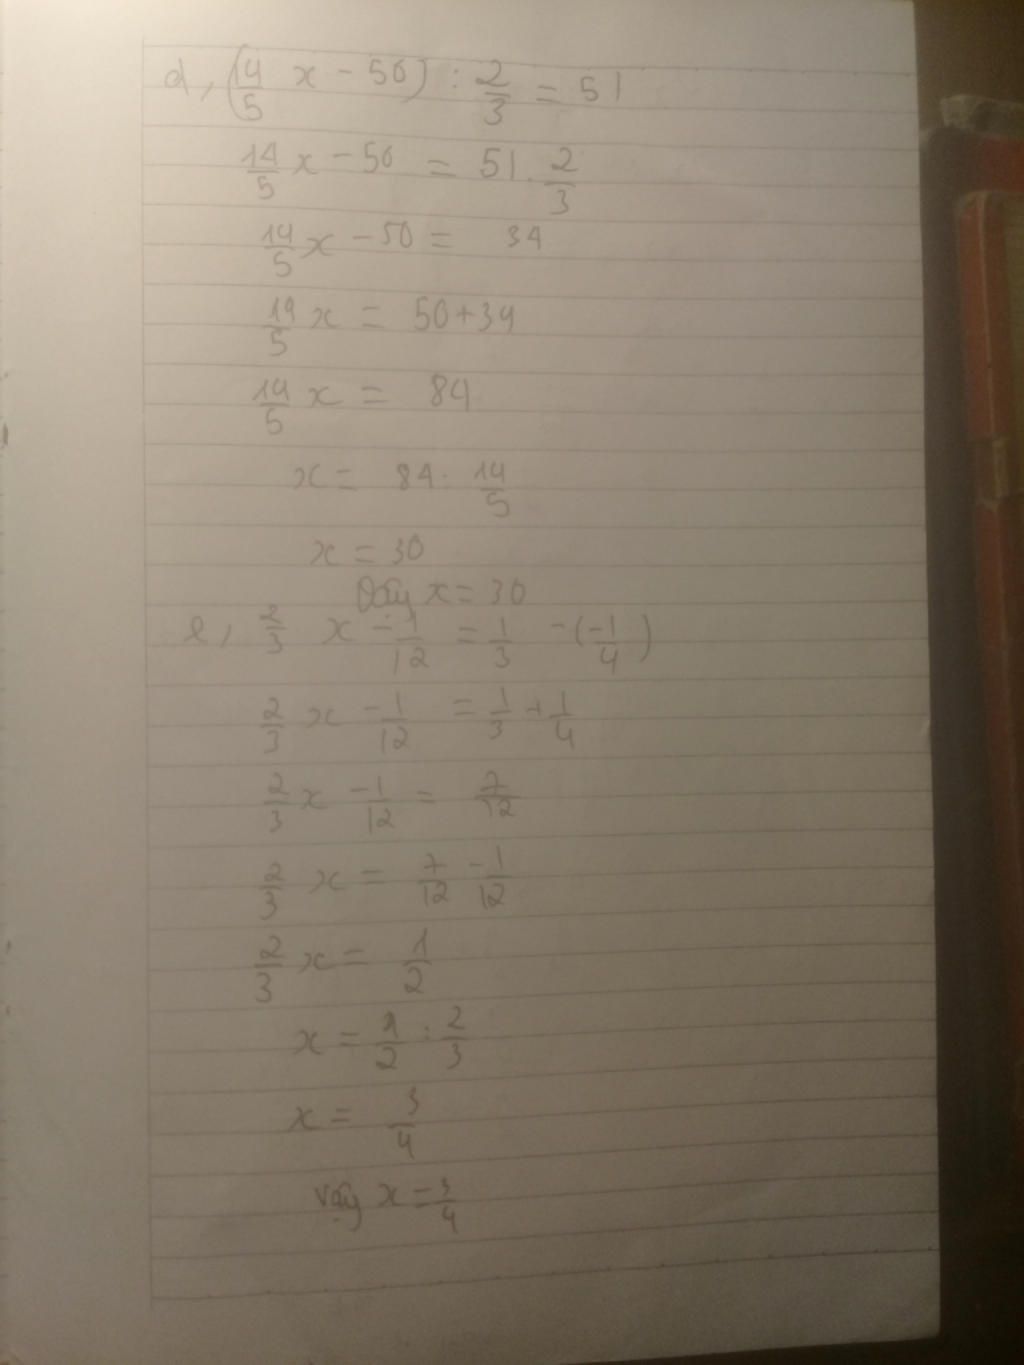 d, (14/5 x - 50) : 2/3 = 51
14/5 x - 50 = 51 . 2/3
14/5 x - 50 = 34
14/5 x = 50 + 34
14/5 x = 84
x = 84 . 14/5
x = 30
Vậy x = 30
e, 2/3 x - 1/12 = 1/3 - (-1/4)
2/3 x - 1/12 = 1/3 + 1/4
2/3 x - 1/12 = 7/12
2/3 x = 7/12 - 1/12
2/3 x = 1/2
x = 1/2 : 2/3
x = 3/4
Vậy x = 3/4